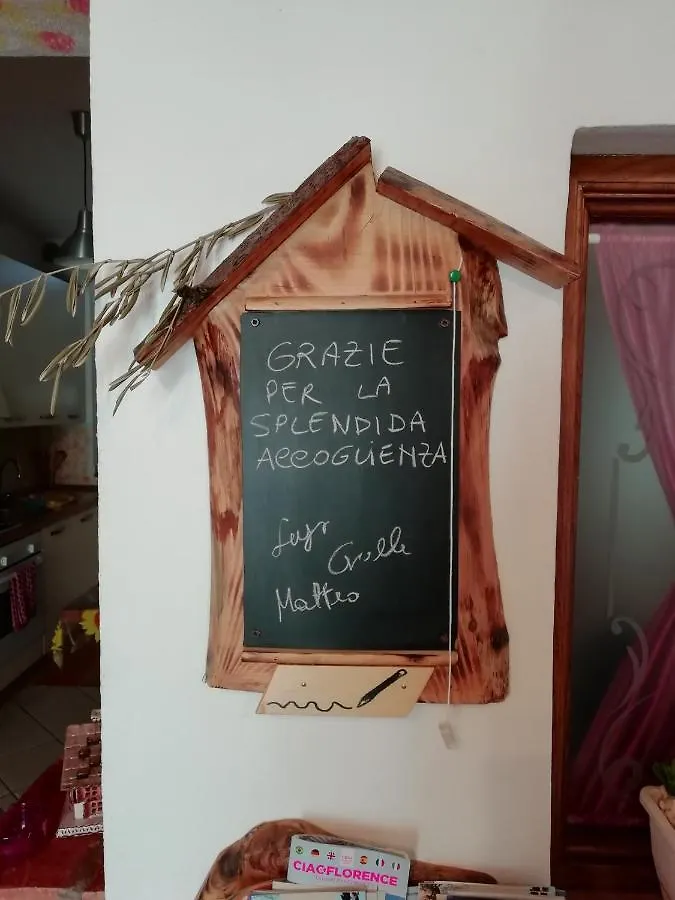 GRAZIE
PER LA
SPLENDIDA
ACCOGLIENZA
Matteo
CIAOFLORENCE